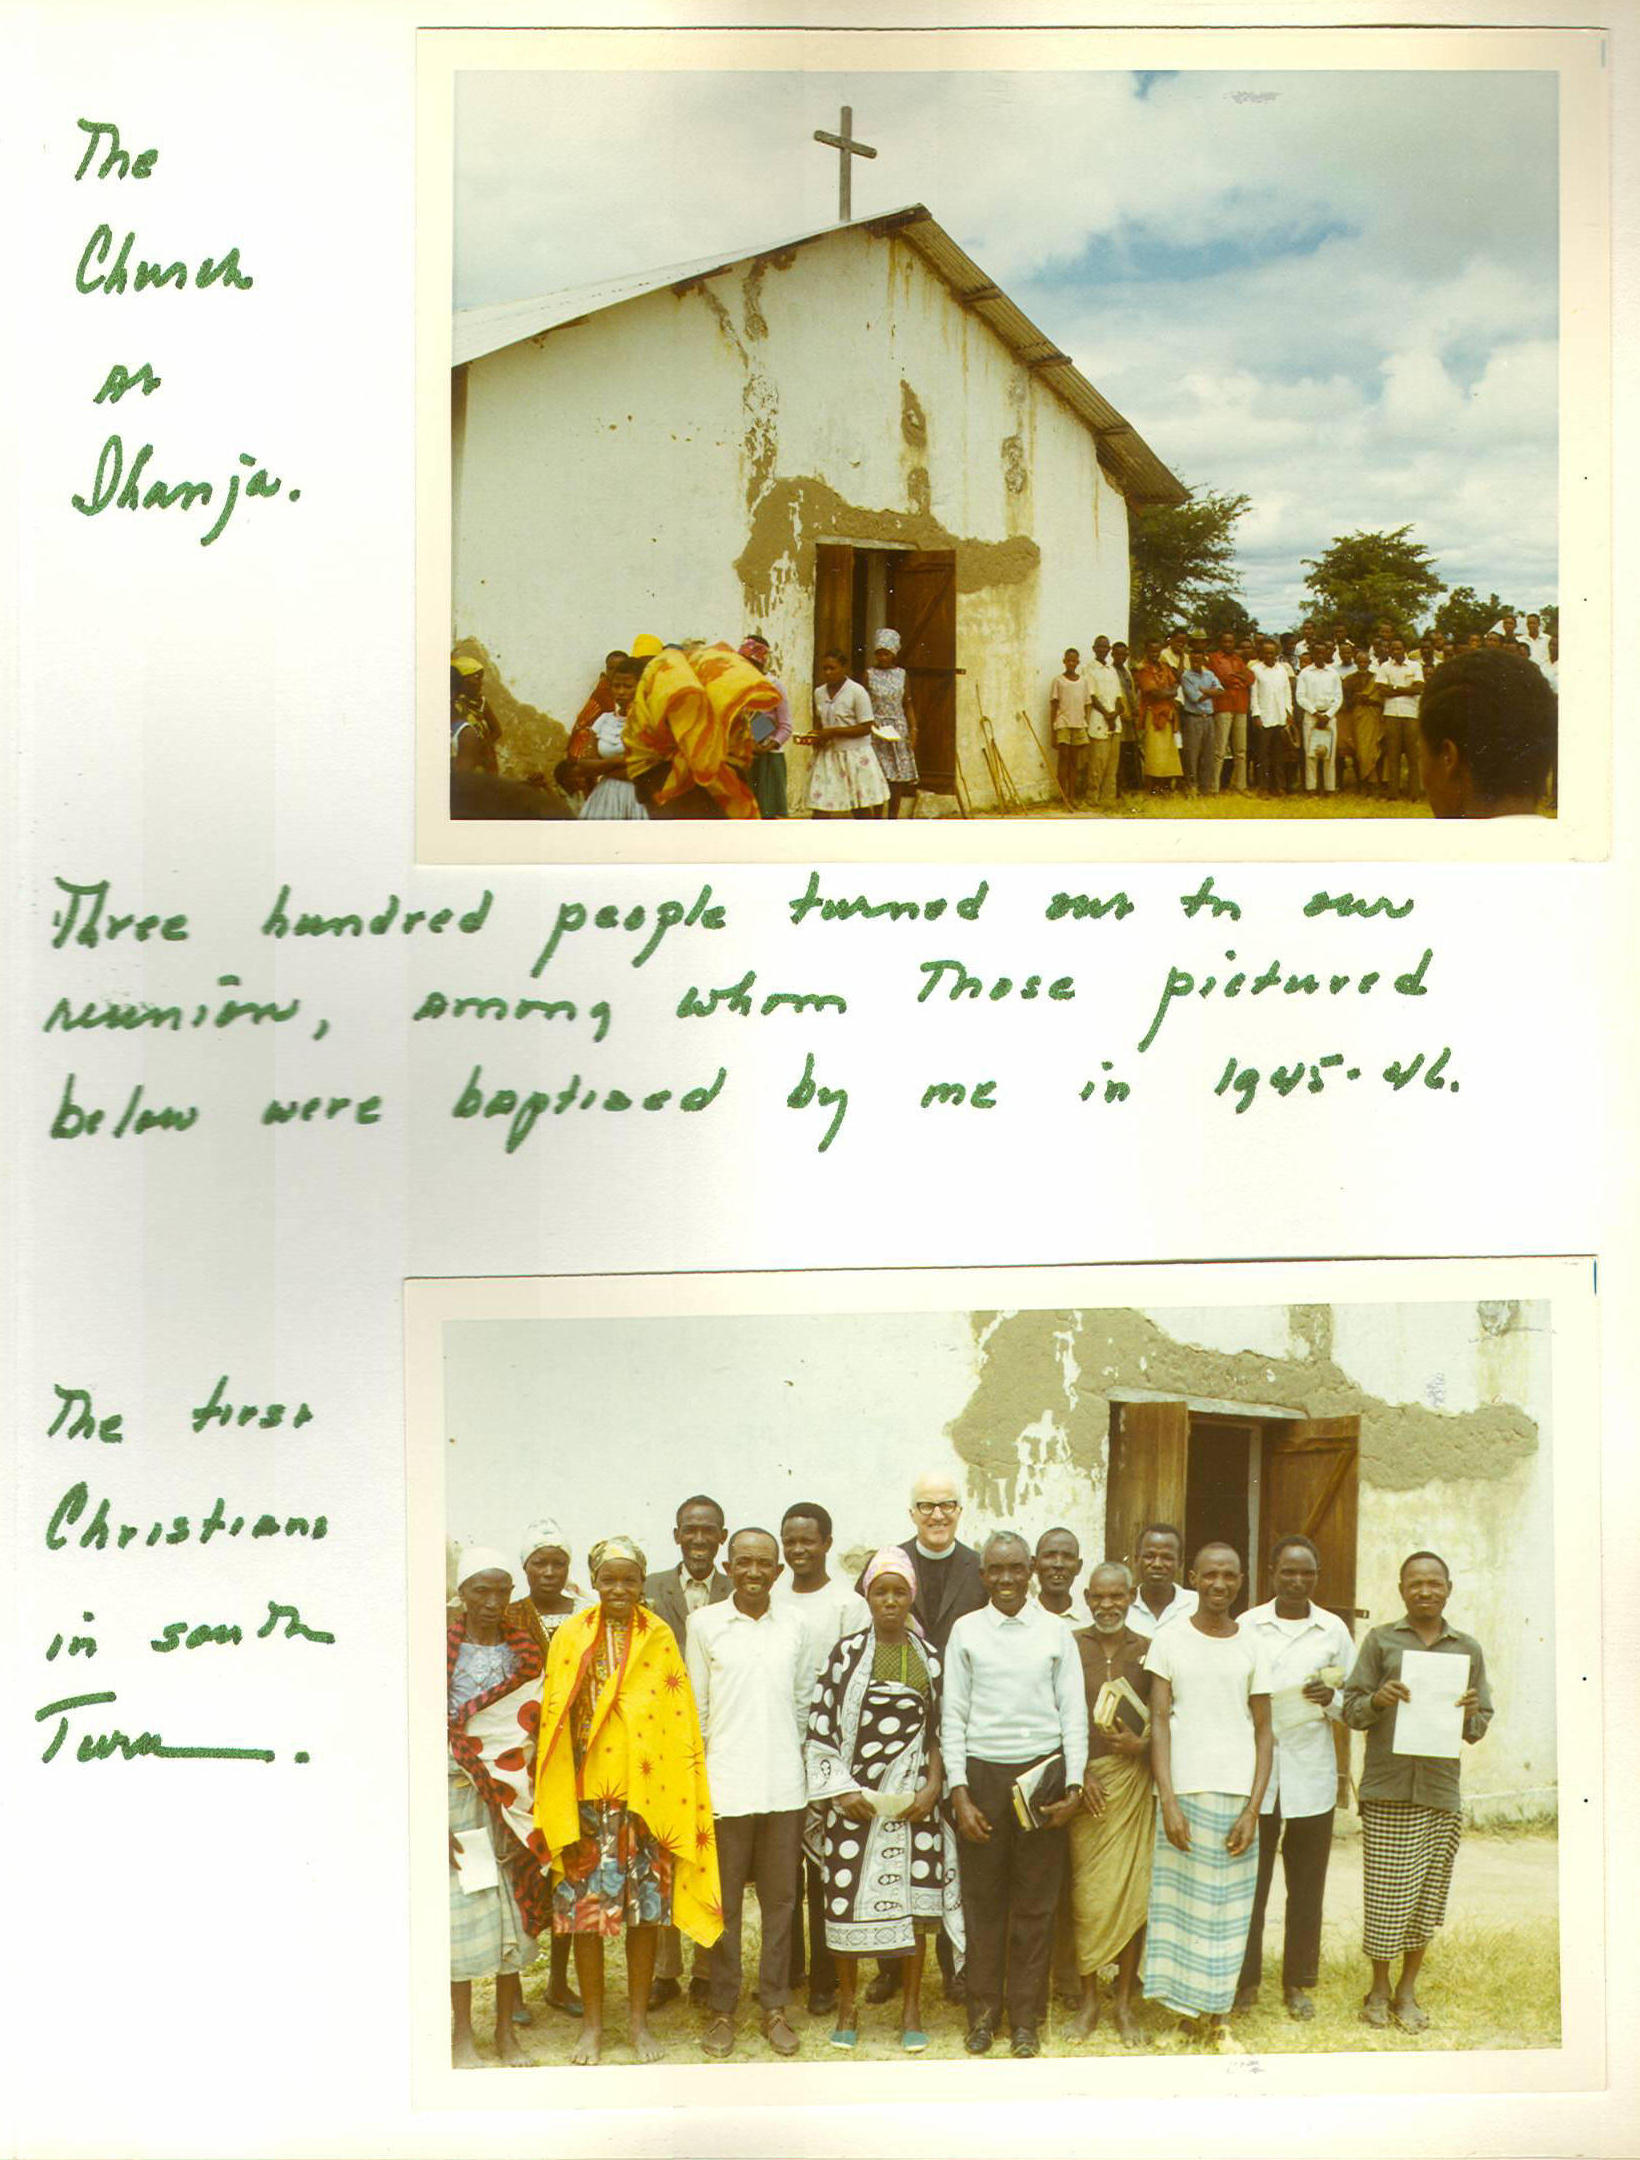 The
Church
at
Ihanja.
Three hundred people turned out to our
reunion, among whom those pictured
below were baptized by me in 1945-46.
The first
Christians
in south
Turu.